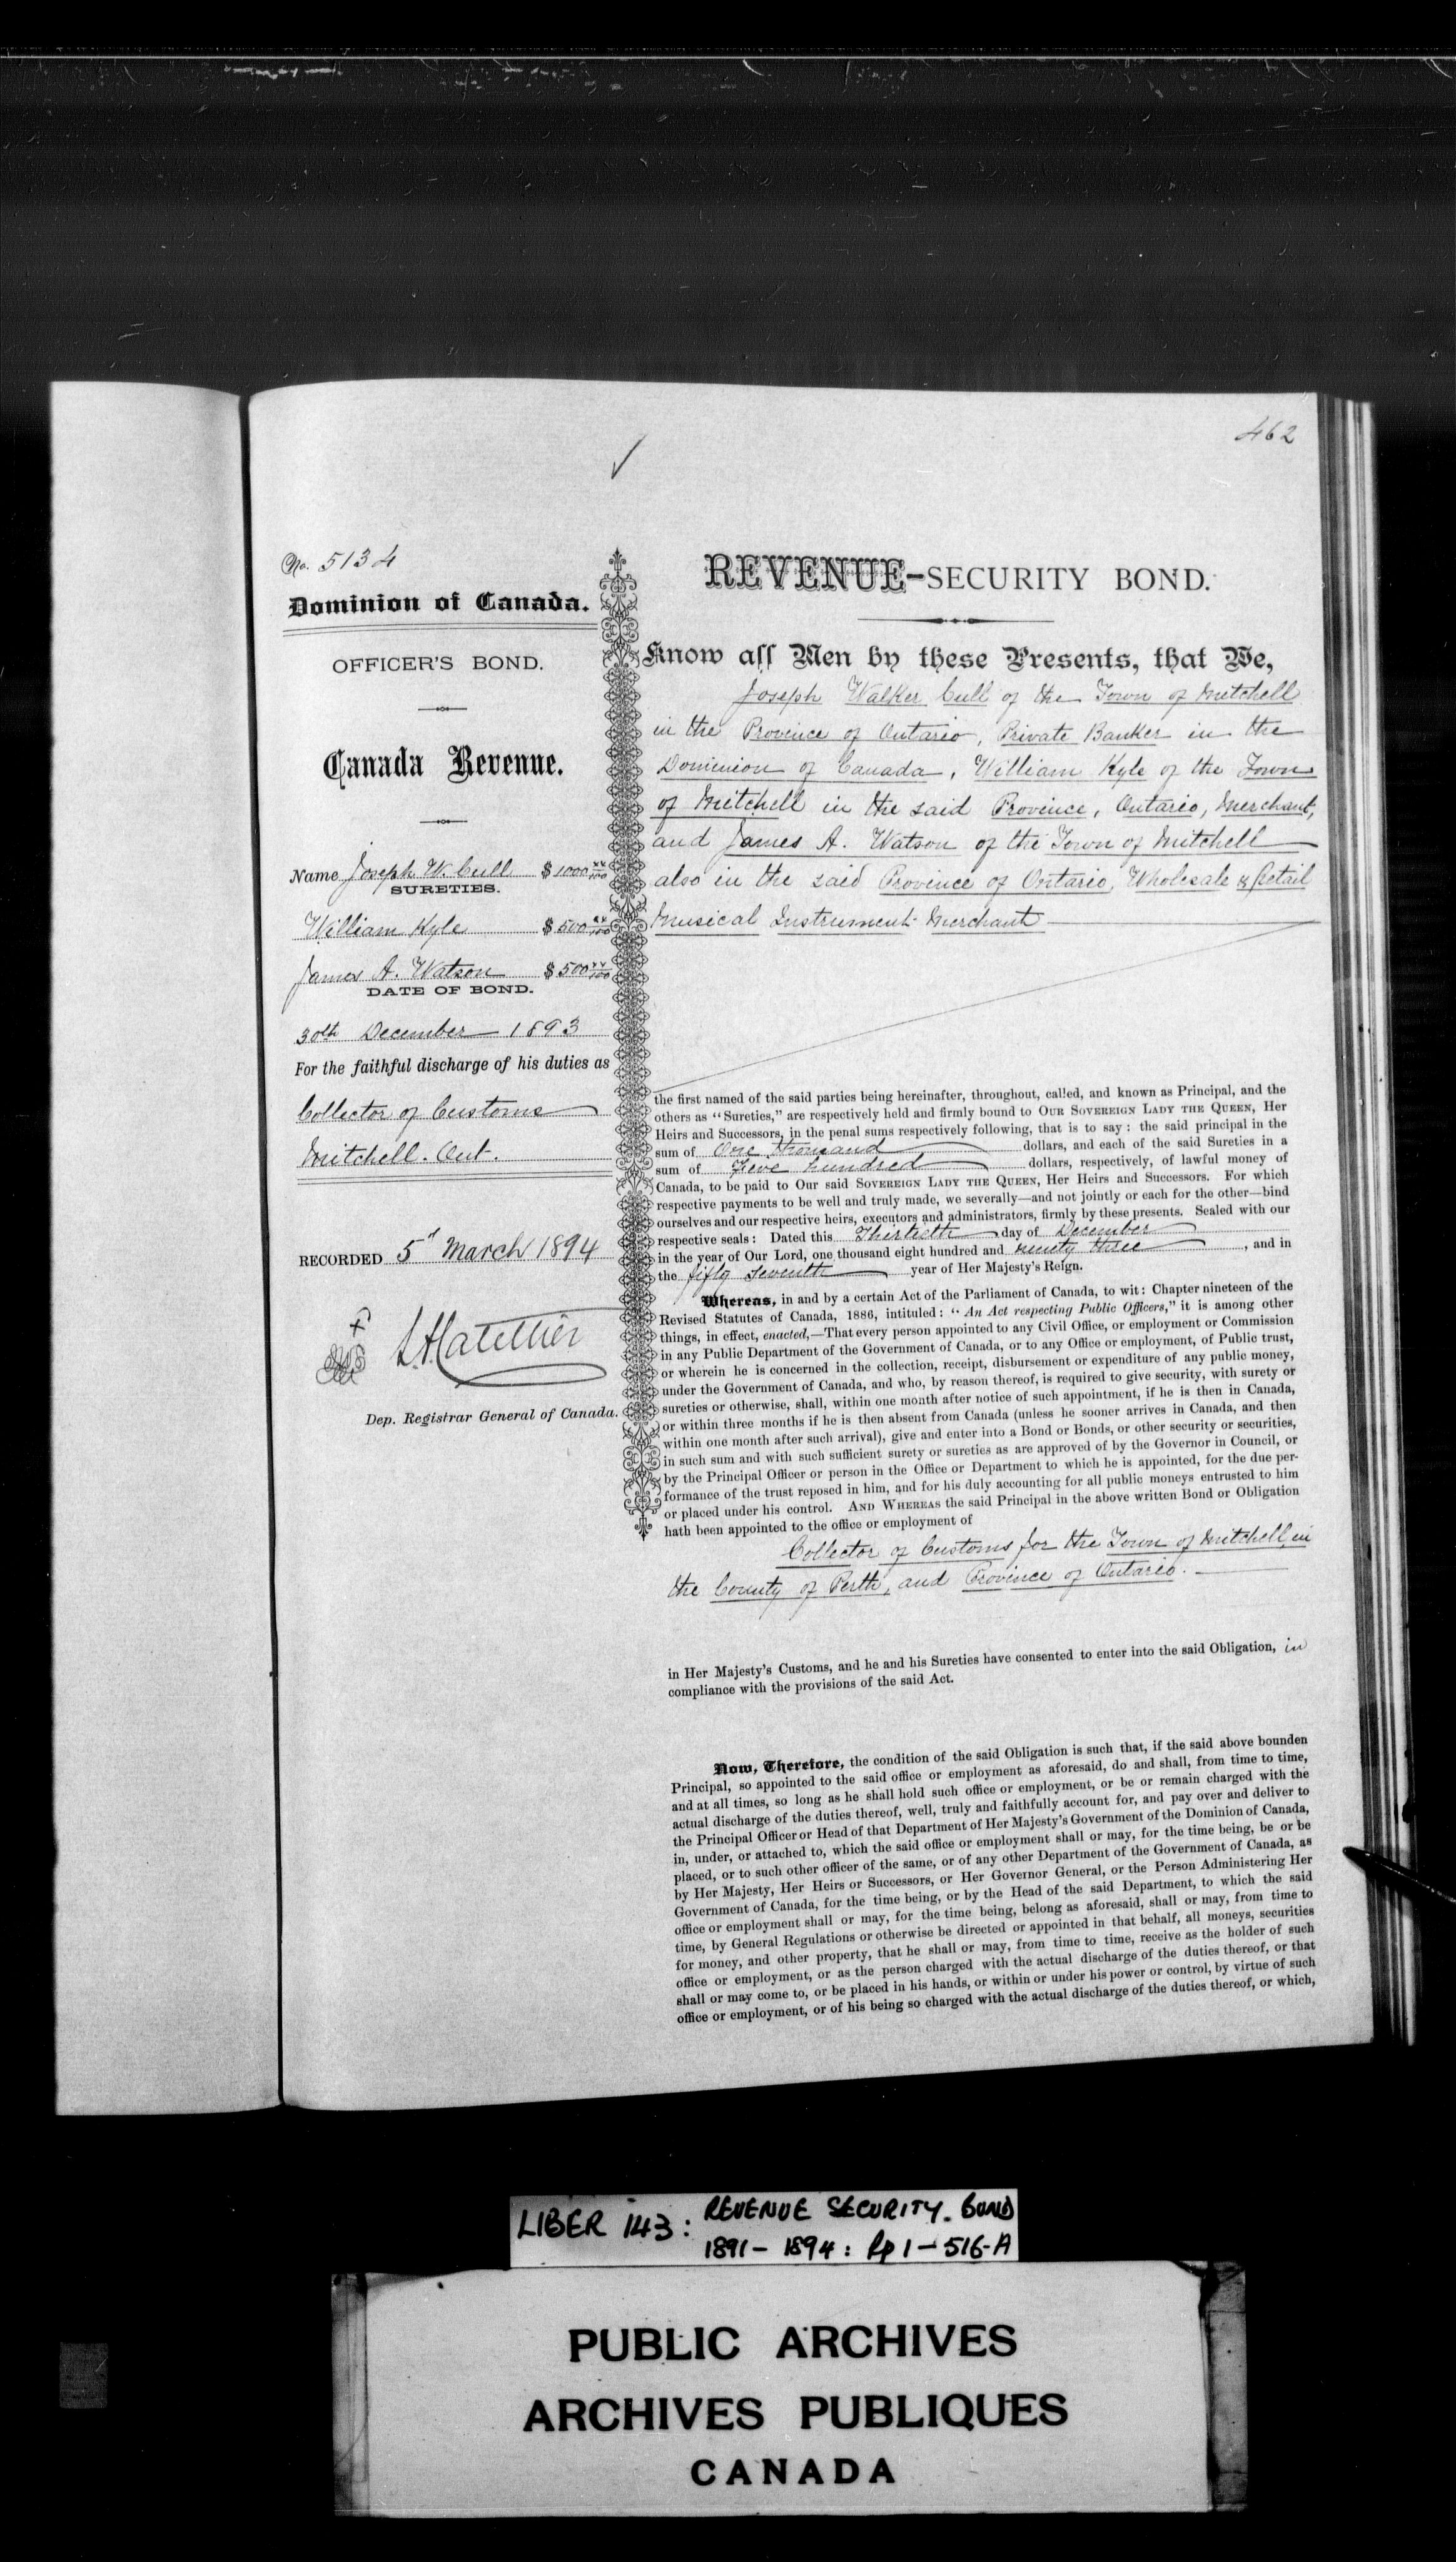 462
No. 5134
Dominion of Canada.
OFFICER'S BOND.
Canada Revenue.
Name Joseph W. Cull $1000 xx/100
SURETIES.
William Kyle $500 xx/100
James A. Watson $500 xx/100
DATE OF BOND.
30th December 1893
For the faithful discharge of his duties as
Collector of Customs
Mitchell. Ont.
RECORDED 5th March 1894
Dep. Registrar General of Canada.
REVENUE-SECURITY BOND.
Know all Men by these Presents, that We,
Joseph Walker Cull of the Town of Mitchell
in the Province of Ontario, Private Banker in the
Dominion of Canada, William Kyle of the Town
of Mitchell in the said Province, Ontario, Merchant,
and James A. Watson of the Town of Mitchell
also in the said Province of Ontario, Wholesale & Retail
Musical Instrument Merchant
the first named of the said parties being hereinafter, throughout, called, and known as Principal, and the
others as "Sureties," are respectively held and firmly bound to OUR SOVEREIGN LADY THE QUEEN, Her
Heirs and Successors, in the penal sums respectively following, that is to say: the said principal in the
sum of One thousand dollars, and each of the said Sureties in a
sum of Five hundred dollars, respectively, of lawful money of
Canada, to be paid to Our said SOVEREIGN LADY THE QUEEN, Her Heirs and Successors. For which
respective payments to be well and truly made, we severally—and not jointly or each for the other—bind
ourselves and our respective heirs, executors and administrators, firmly by these presents. Sealed with our
respective seals: Dated this Thirtieth day of December
in the year of Our Lord, one thousand eight hundred and ninety three, and in
the fifty seventh year of Her Majesty's Reign.
Whereas, in and by a certain Act of the Parliament of Canada, to wit: Chapter nineteen of the
Revised Statutes of Canada, 1886, intituled: "An Act respecting Public Officers," it is among other
things, in effect, enacted,—That every person appointed to any Civil Office, or employment or Commission
in any Public Department of the Government of Canada, or to any Office or employment, of Public trust,
or wherein he is concerned in the collection, receipt, disbursement or expenditure of any public money,
under the Government of Canada, and who, by reason thereof, is required to give security, with surety or
sureties or otherwise, shall, within one month after notice of such appointment, if he is then in Canada,
or within three months if he is then absent from Canada (unless he sooner arrives in Canada, and then
within one month after such arrival), give and enter into a Bond or Bonds, or other security or securities,
in such sum and with such sufficient surety or sureties as are approved of by the Governor in Council, or
by the Principal Officer or person in the Office or Department to which he is appointed, for the due per-
formance of the trust reposed in him, and for his duly accounting for all public moneys entrusted to him
or placed under his control. AND WHEREAS the said Principal in the above written Bond or Obligation
hath been appointed to the office or employment of
Collector of Customs for the Town of Mitchell, in
the County of Perth, and Province of Ontario.
in Her Majesty's Customs, and he and his Sureties have consented to enter into the said Obligation, in
compliance with the provisions of the said Act.
Now, Therefore, the condition of the said Obligation is such that, if the said above bounden
Principal, so appointed to the said office or employment as aforesaid, do and shall, from time to time,
and at all times, so long as he shall hold such office or employment, or be or remain charged with the
actual discharge of the duties thereof, well, truly and faithfully account for, and pay over and deliver to
the Principal Officer or Head of that Department of Her Majesty's Government of the Dominion of Canada,
in, under, or attached to, which the said office or employment shall or may, for the time being, be or be
placed, or to such other officer of the same, or of any other Department of the Government of Canada, as
by Her Majesty, Her Heirs or Successors, or Her Governor General, or the Person Administering Her
Government of Canada, for the time being, or by the Head of the said Department, to which the said
office or employment shall or may, for the time being, belong as aforesaid, shall or may, from time to
time, by General Regulations or otherwise be directed or appointed in that behalf, all moneys, securities
for money, and other property, that he shall or may, from time to time, receive as the holder of such
office or employment, or as the person charged with the actual discharge of the duties thereof, or that
shall or may come to, or be placed in his hands, or within or under his power or control, by virtue of such
office or employment, or of his being so charged with the actual discharge of the duties thereof, or which,
LIBER 143: REVENUE SECURITY. BOND
1891-1894: Pp 1-516-A
PUBLIC ARCHIVES
ARCHIVES PUBLIQUES
CANADA